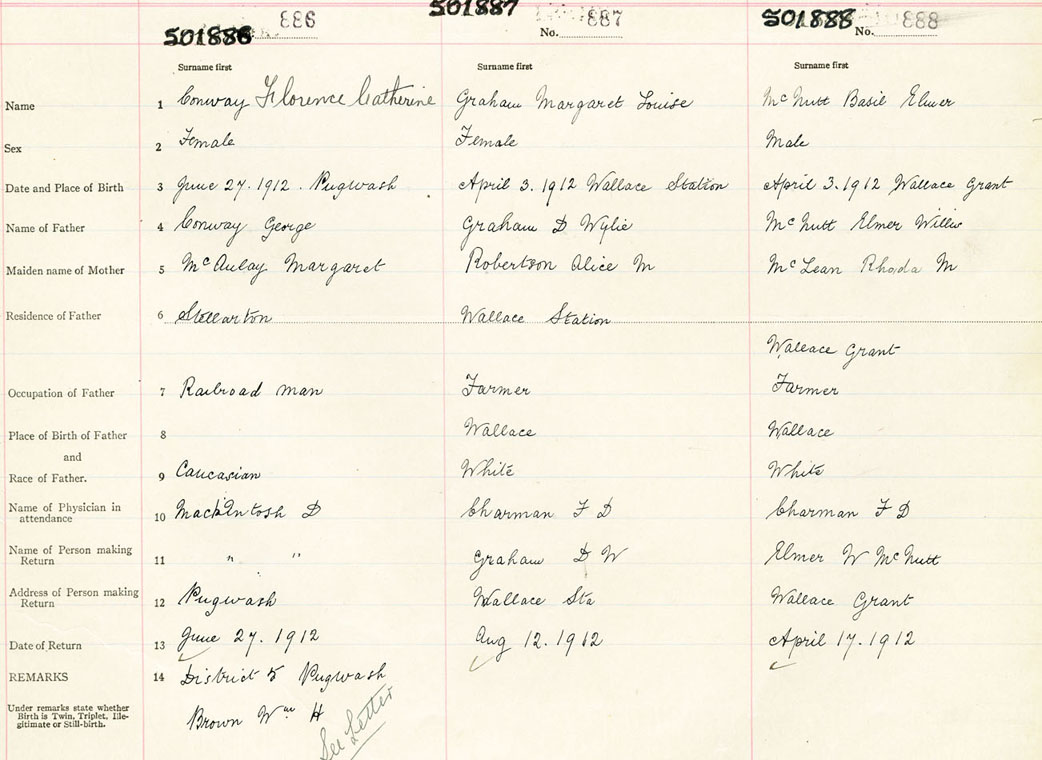 501886 886 501887 No. 887 501888 No. 888
Surname first Surname first Surname first
Name 1 Conway Florence Catherine Graham Margaret Louise McNutt Basil Elmer
Sex 2 Female Female Male
Date and Place of Birth 3 June 27. 1912. Pugwash April 3. 1912 Wallace Station April 3. 1912 Wallace Grant
Name of Father 4 Conway George Graham D Wylie McNutt Elmer
Maiden name of Mother 5 McAulay Margaret Robertson Alice M McLean Rhoda M
Residence of Father 6 Stellarton Wallace Station
Wallace Grant
Occupation of Father 7 Railroad man Farmer Farmer
Place of Birth of Father 8 Wallace Wallace
and
Race of Father. 9 Caucasian White White
Name of Physician in
attendance 10 MackIntosh D Charman F D Charman F D
Name of Person making
Return 11 " " Graham D W Elmer W McNutt
Address of Person making
Return 12 Pugwash Wallace Sta Wallace Grant
Date of Return 13 June 27. 1912 Aug 12. 1912 April 17. 1912
REMARKS 14 District 5 Pugwash
Under remarks state whether
Birth is Twin, Triplet, Ille-
gitimate or Still-birth.
Brown Wm H
See Letter